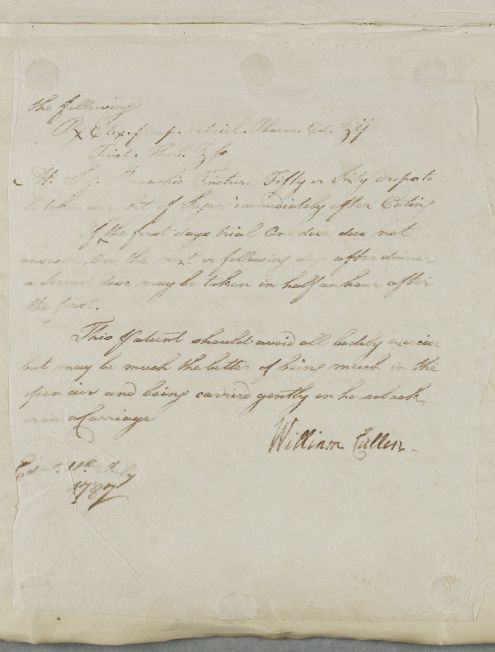 the following
Rx Elix. Pharm. Ed. ℥ij
Tinct. Theb. ʒss
M. Sig. Stomachic Tincture Fifty or Sixty drops to
be taken on a bit of Sugar immediately after Eating
If the first days trial One dose does not
answer, On the next or following days after dinner
a second dose may be taken in half an hour after
the first.
This Patient should avoid all bodily exercise
but may be much the better of being much in the
open air and being carried gently on horseback
or in a Carriage
William Cullen.
Edin. 11th July
1787